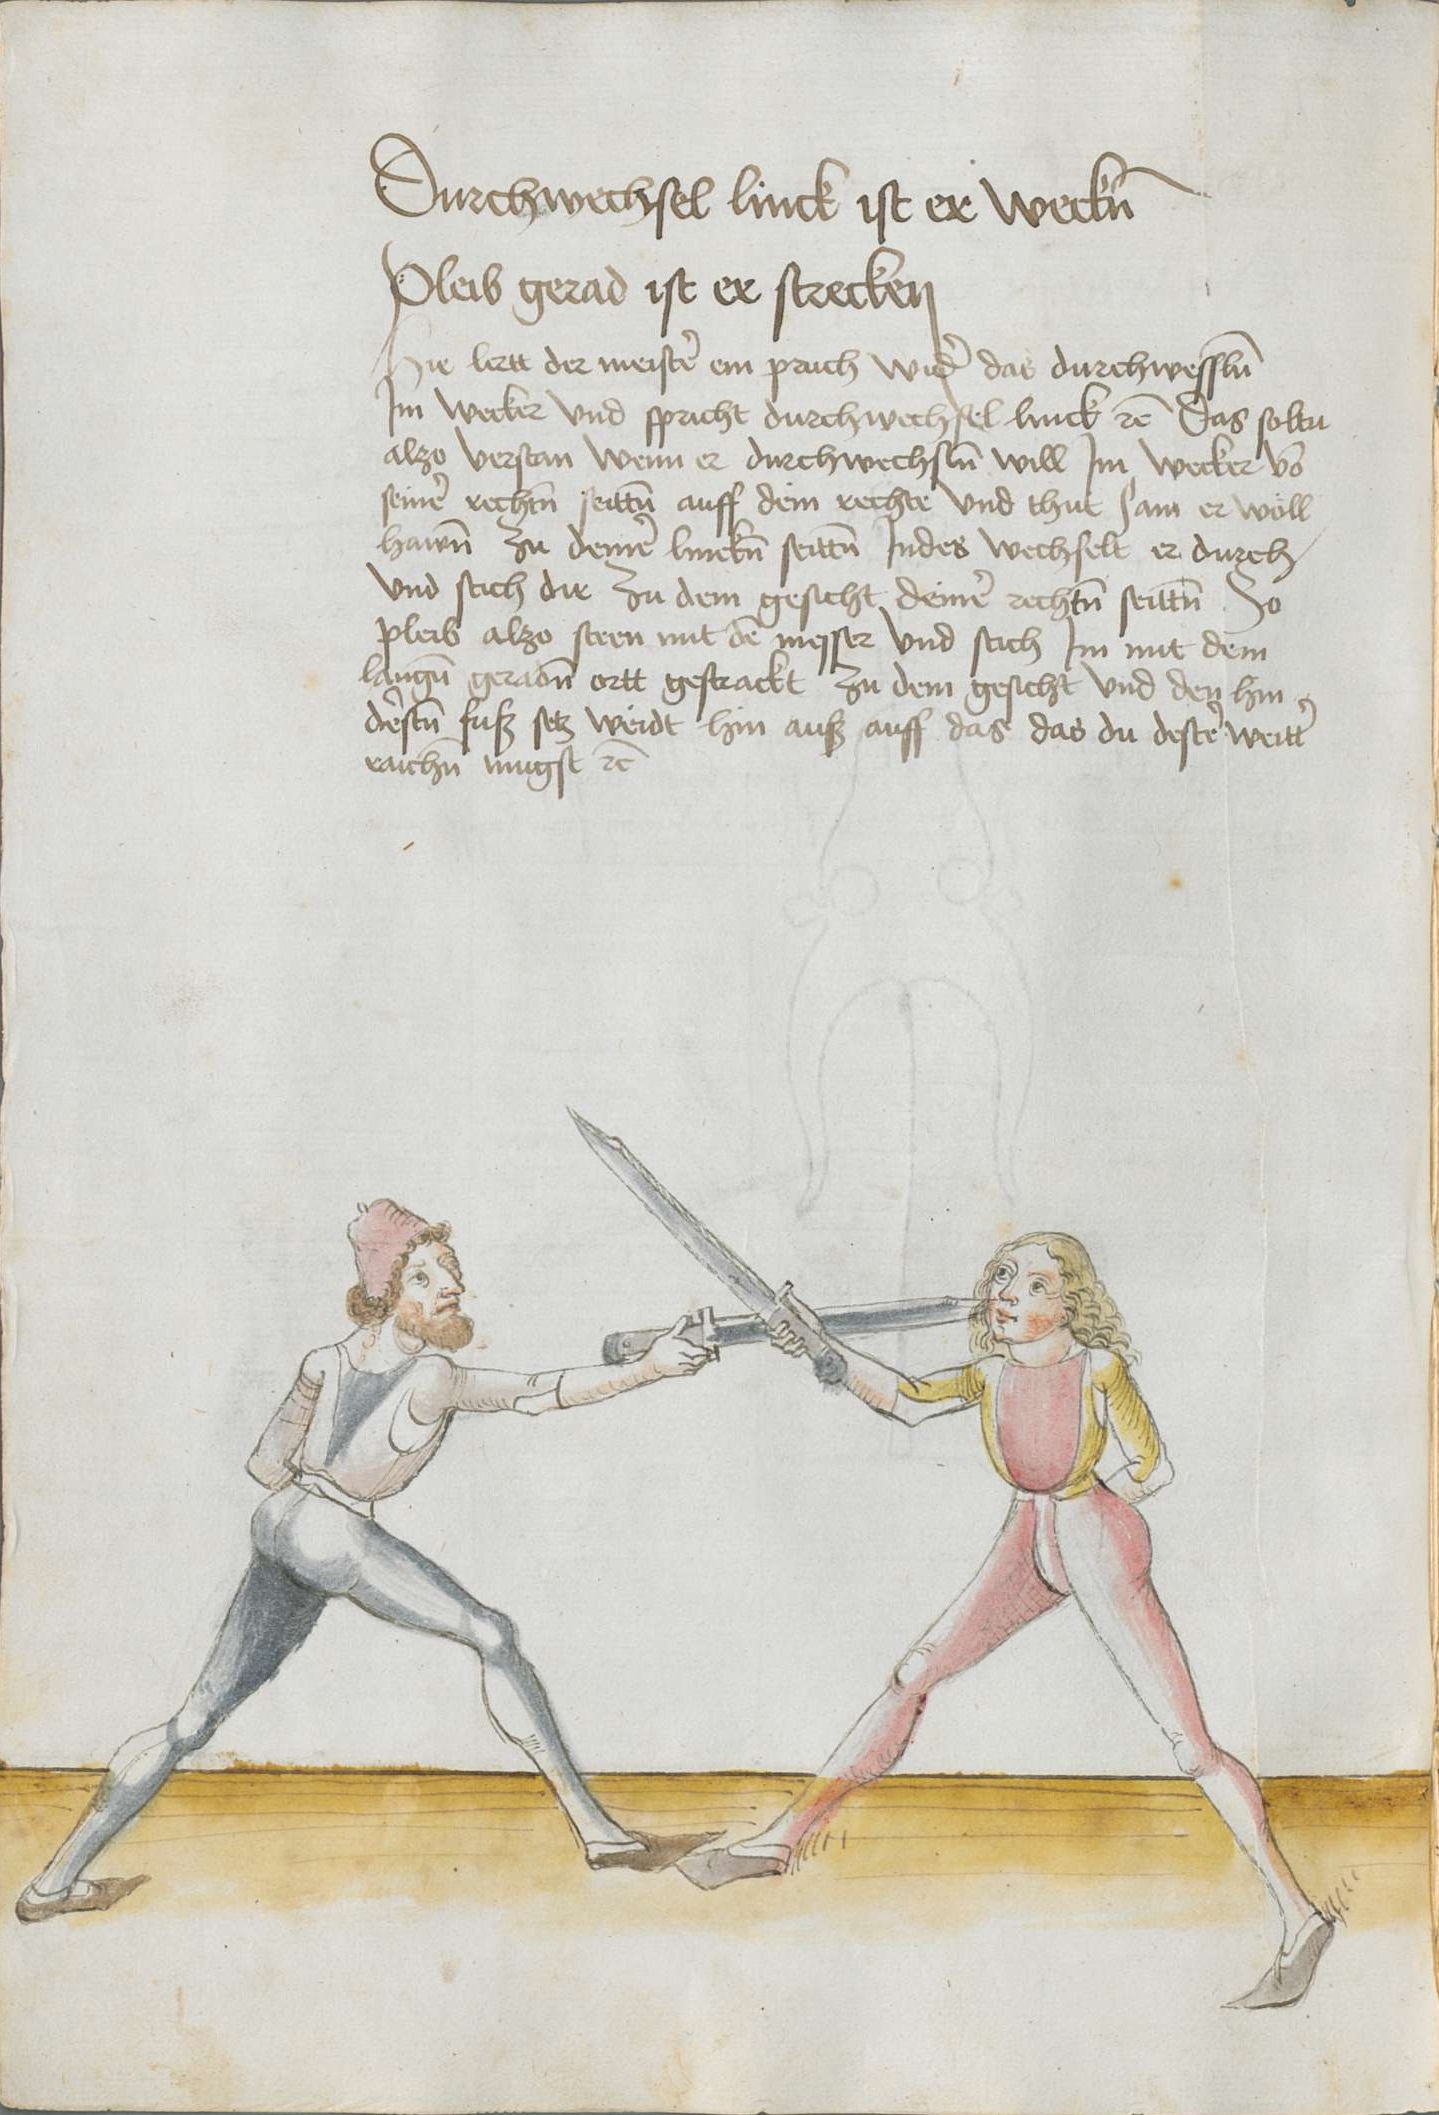 Durchwechsel linck ist er weckñ
Pleib gerad ist er strecken
Hie lertt der meistẽ ein pruch widẽ das durchwesslñ
Im wecker vnd spricht durchwechsel linck ꝛc̃ Das soltu
alzo verstan wenn er durchwechslñ will Im wecker võ
seinẽ rechtñ seittñ auff dein rechte vnd thut sam er wöll
hawñ zu deinẽ linckñ seittñ Indes wechselt er durch
vnd stich dir zu dem gesicht deinẽ rechtñ seittñ So
pleib alzo steen mit dẽ messer vnd stich Im mit dem
langñ geradñ ortt gestrackt zu dem gesicht vnd den hin
dẽstñ fuß setz weidt hin auß auff das das du destẽ weittẽ
raichñ mugst ꝛc̃